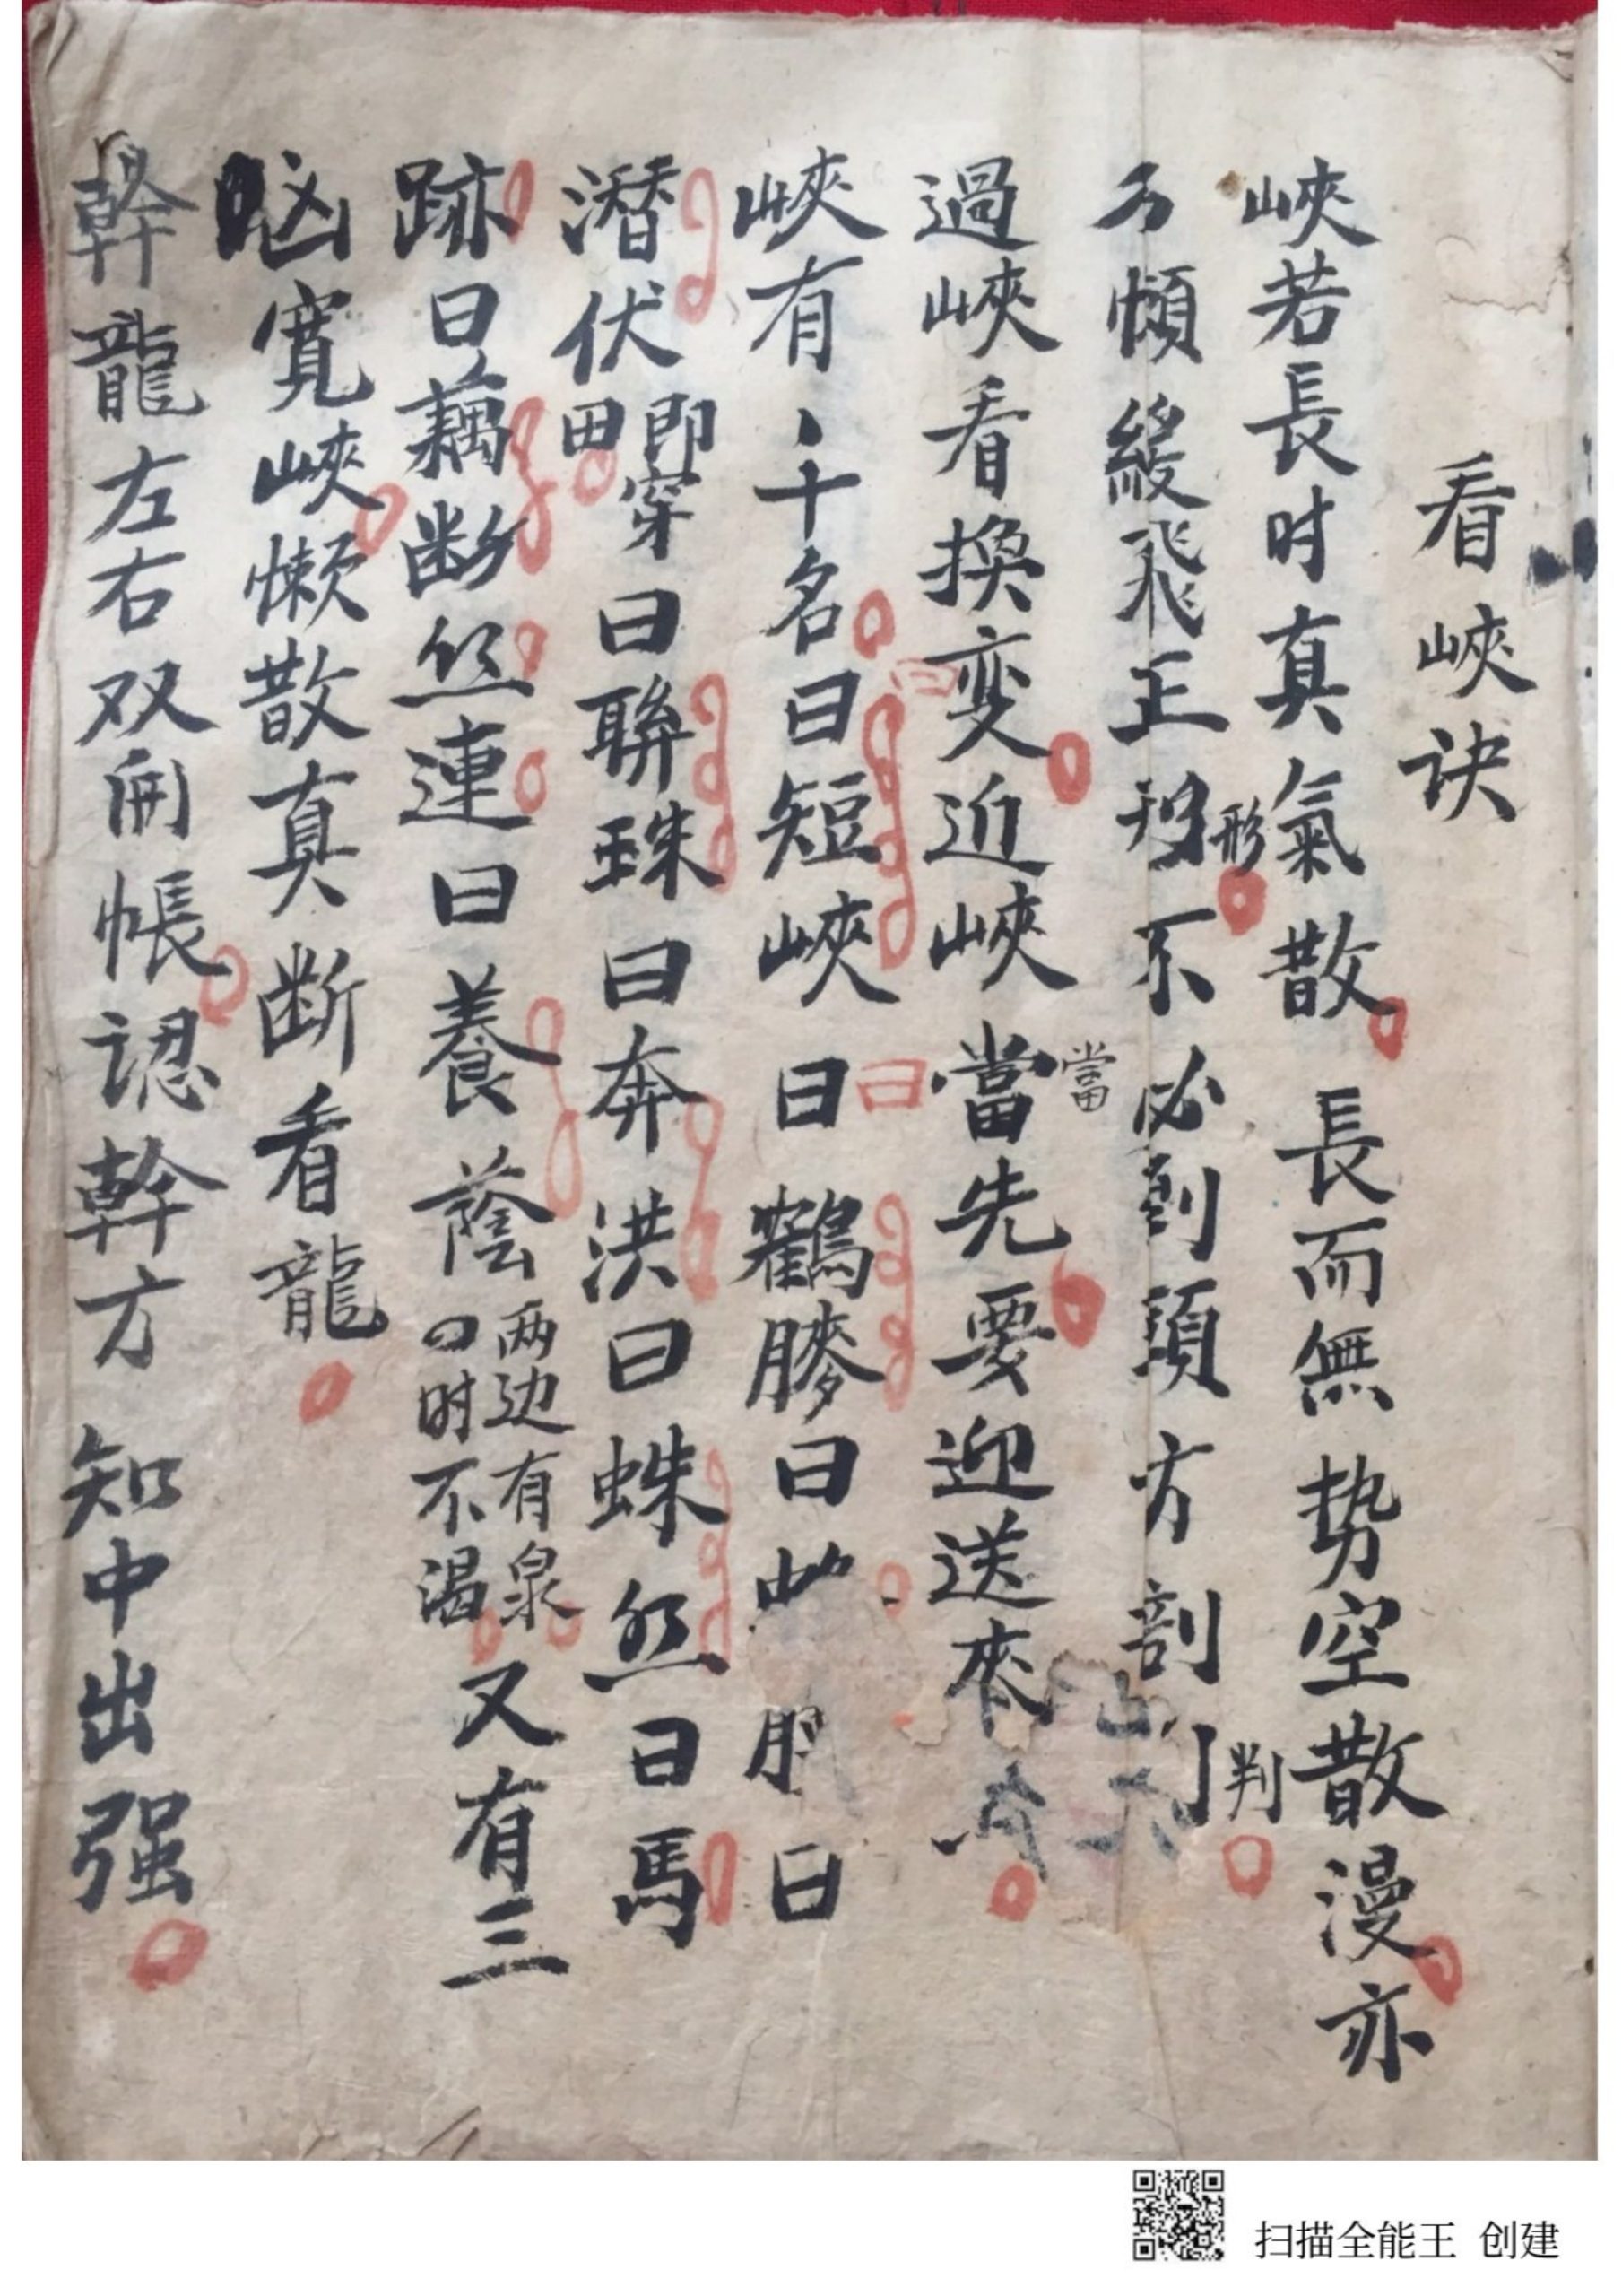 看峽诀
峽若長时真氣散長而無势空散漫亦
緩飛正形不必到頭方剖判
過峽看換变近峽當先要迎送來
峽有十名曰短峽曰鶴膝曰曰
潛伏即穿田曰聨珠曰奔洪曰蛛丝曰馬
跡曰藕断丝連曰養蔭两边有泉四时不渴又有三
凶寛峽懒散真断看龍
幹龍左右双開帳認幹方知中出强
扫描全能王 创建